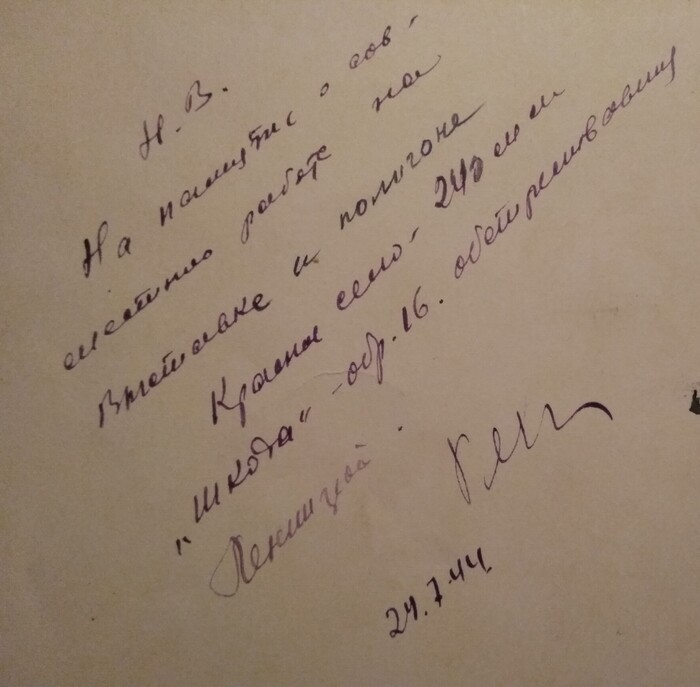 Н. В.
На память о сов-
местной работе на
Выставке и полигоне
Красное село - 240 мм
„Шкода“ - обр. 16. обстреливавшей
Ленинград.
24.7.44